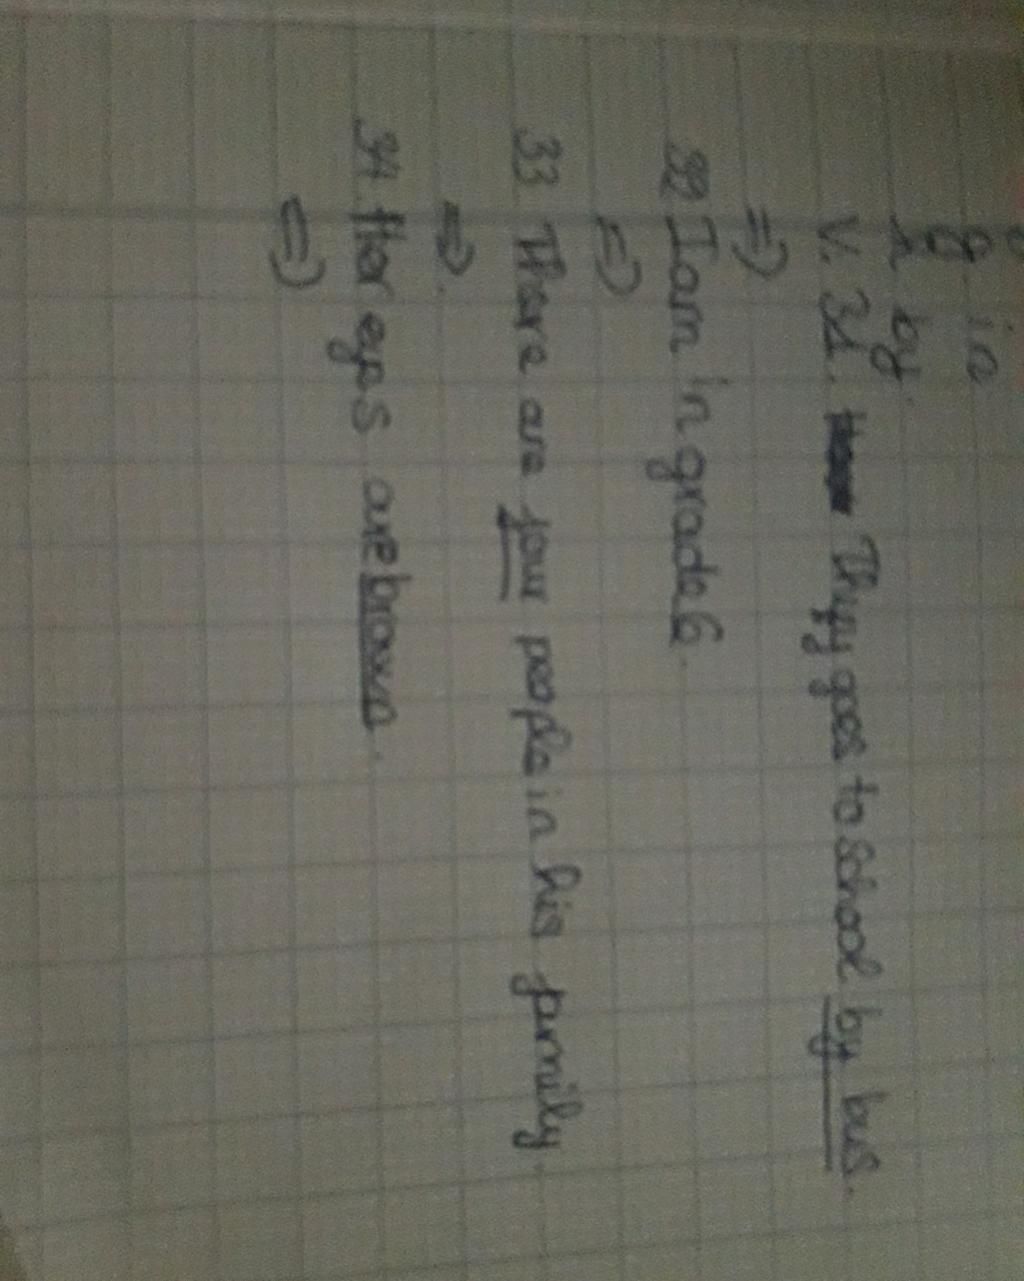 g. in
h. by.
V. 31. Thuy goes to school by bus.
=>
32 I am in grade 6.
=>
33. There are four people in his family.
=>
34. Her eyes are brown.
=>